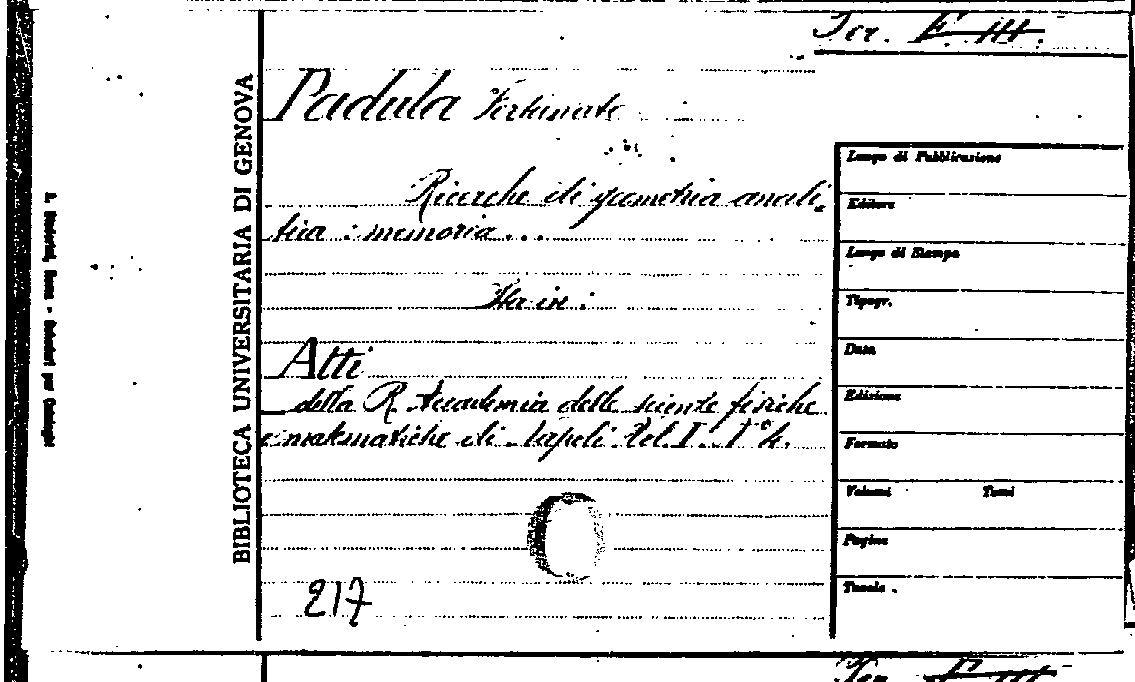 Ser. F. III.
Padula Fortunato
Ricerche di geometria anali-
tica : memoria...
Sta in :
Atti
della R. Accademia delle scienze fisiche
e matematiche di Napoli Vol. I. N° 4.
217
BIBLIOTECA UNIVERSITARIA DI GENOVA
Luogo di Pubblicazione
Editore
Luogo di Stampa
Tipogr.
Data
Edizione
Formato
Volumi Tomi
Pagine
Tavole
Roma - per Cataloghi